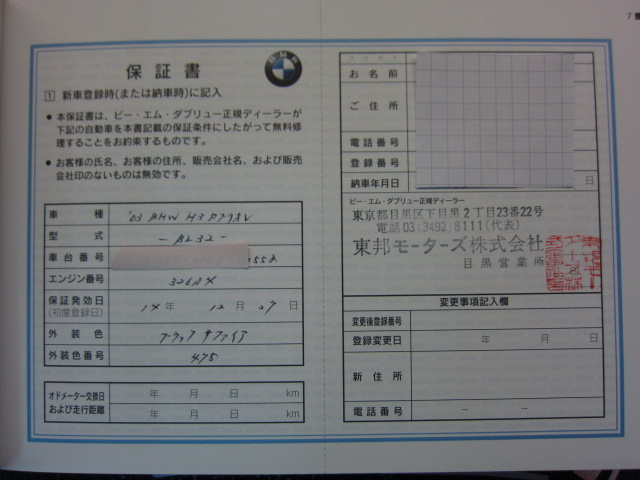 7
保証書
BMW
1 新車登録時(または納車時)に記入
● 本保証書は、ビー・エム・ダブリュー正規ディーラーが
下記の自動車を本書記載の保証条件にしたがって無料修
理することをお約束するものです。
● お客様の氏名、お客様の住所、販売会社名、および販売
会社印のないものは無効です。
車種 '03 BMW M3
型式 -BL32-
車台番号
エンジン番号 326S4
保証発効日 14年 12月 27日
(初度登録日)
外装色 ブラックサファイア
外装色番号 475
オドメーター交換日 年 月 日 km
および走行距離 年 月 日 km
お名前
ご住所
電話番号
登録番号
納車年月日 日
ビー・エム・ダブリュー正規ディーラー
東京都目黒区下目黒2丁目23番22号
電話03(3492)8111(代表)
東邦モーターズ株式会社
目黒営業所
変更事項記入欄
変更後登録番号
登録変更日 年 月 日
新住所
電話番号 － －